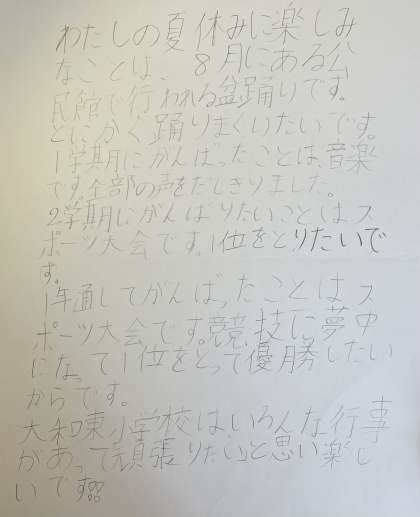 わたしの夏休みに楽しみ
なことは、8月にある公
民館で行われる盆踊りです。
とにかく踊りまくりたいです。
1学期にがんばったことは、音楽
です。全部の声をだしきりました。
2学期にがんばりたいことはス
ポーツ大会です。1位をとりたいで
す。
1年通してがんばったことはス
ポーツ大会です。競技に夢中
になって1位をとって優勝したい
からです。
大和東小学校は、いろんな行事
があって頑張りたいと思い楽し
いです